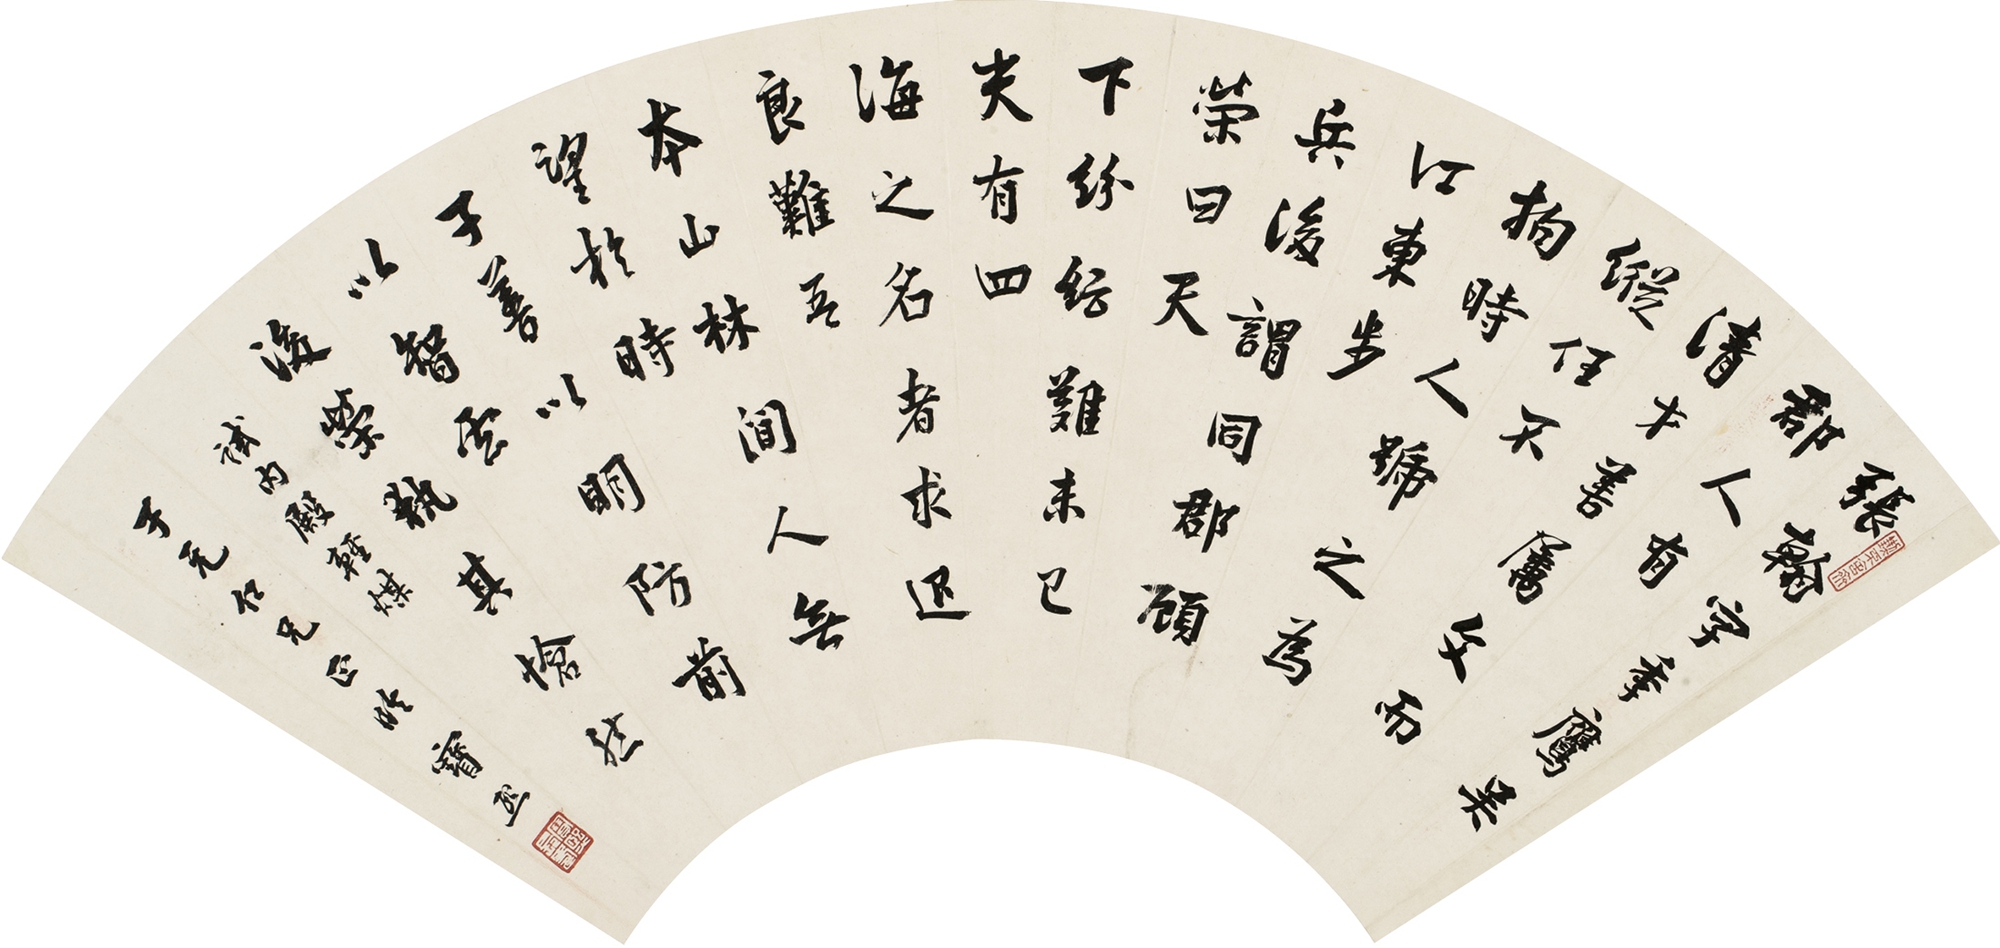 張翰字季鷹吳
郡人有
清才善屬文而
縱任不
拘時人號之為
江東步
兵後謂同郡顧
榮曰天
下紛紜難未已
夫有四
海之名者求退
良難吾
本山林間人無
望於時
子善以明防前
以智慮
後榮執其愴然
試内殿輕煤
子元仁兄正 寶熙